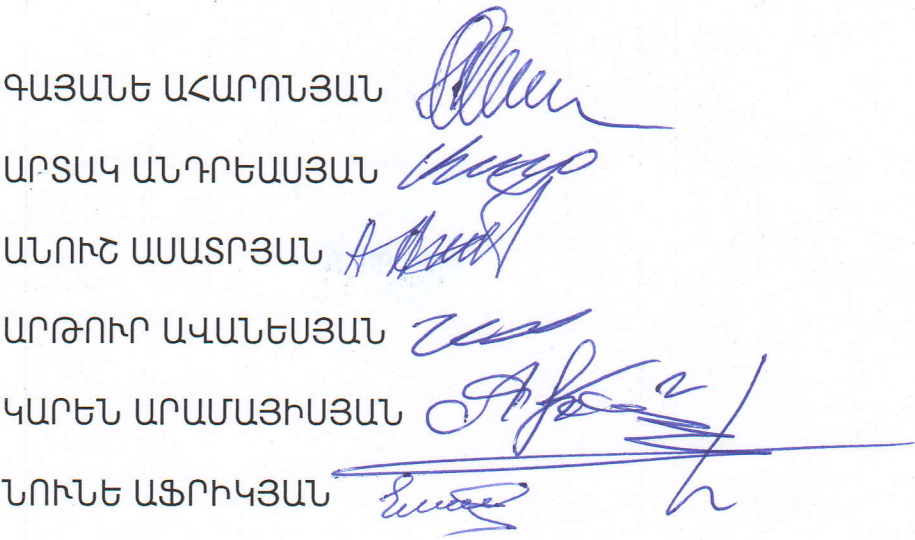 ԳԱՅԱՆԵ ԱՀԱՐՈՆՅԱՆ
ԱՐՏԱԿ ԱՆԴՐԵԱՍՅԱՆ
ԱՆՈՒՇ ԱՍԱՏՐՅԱՆ
ԱՐԹՈՒՐ ԱՎԱՆԵՍՅԱՆ
ԿԱՐԵՆ ԱՐԱՄԱՅԻՍՅԱՆ
ՆՈՒՆԵ ԱՖՐԻԿՅԱՆ